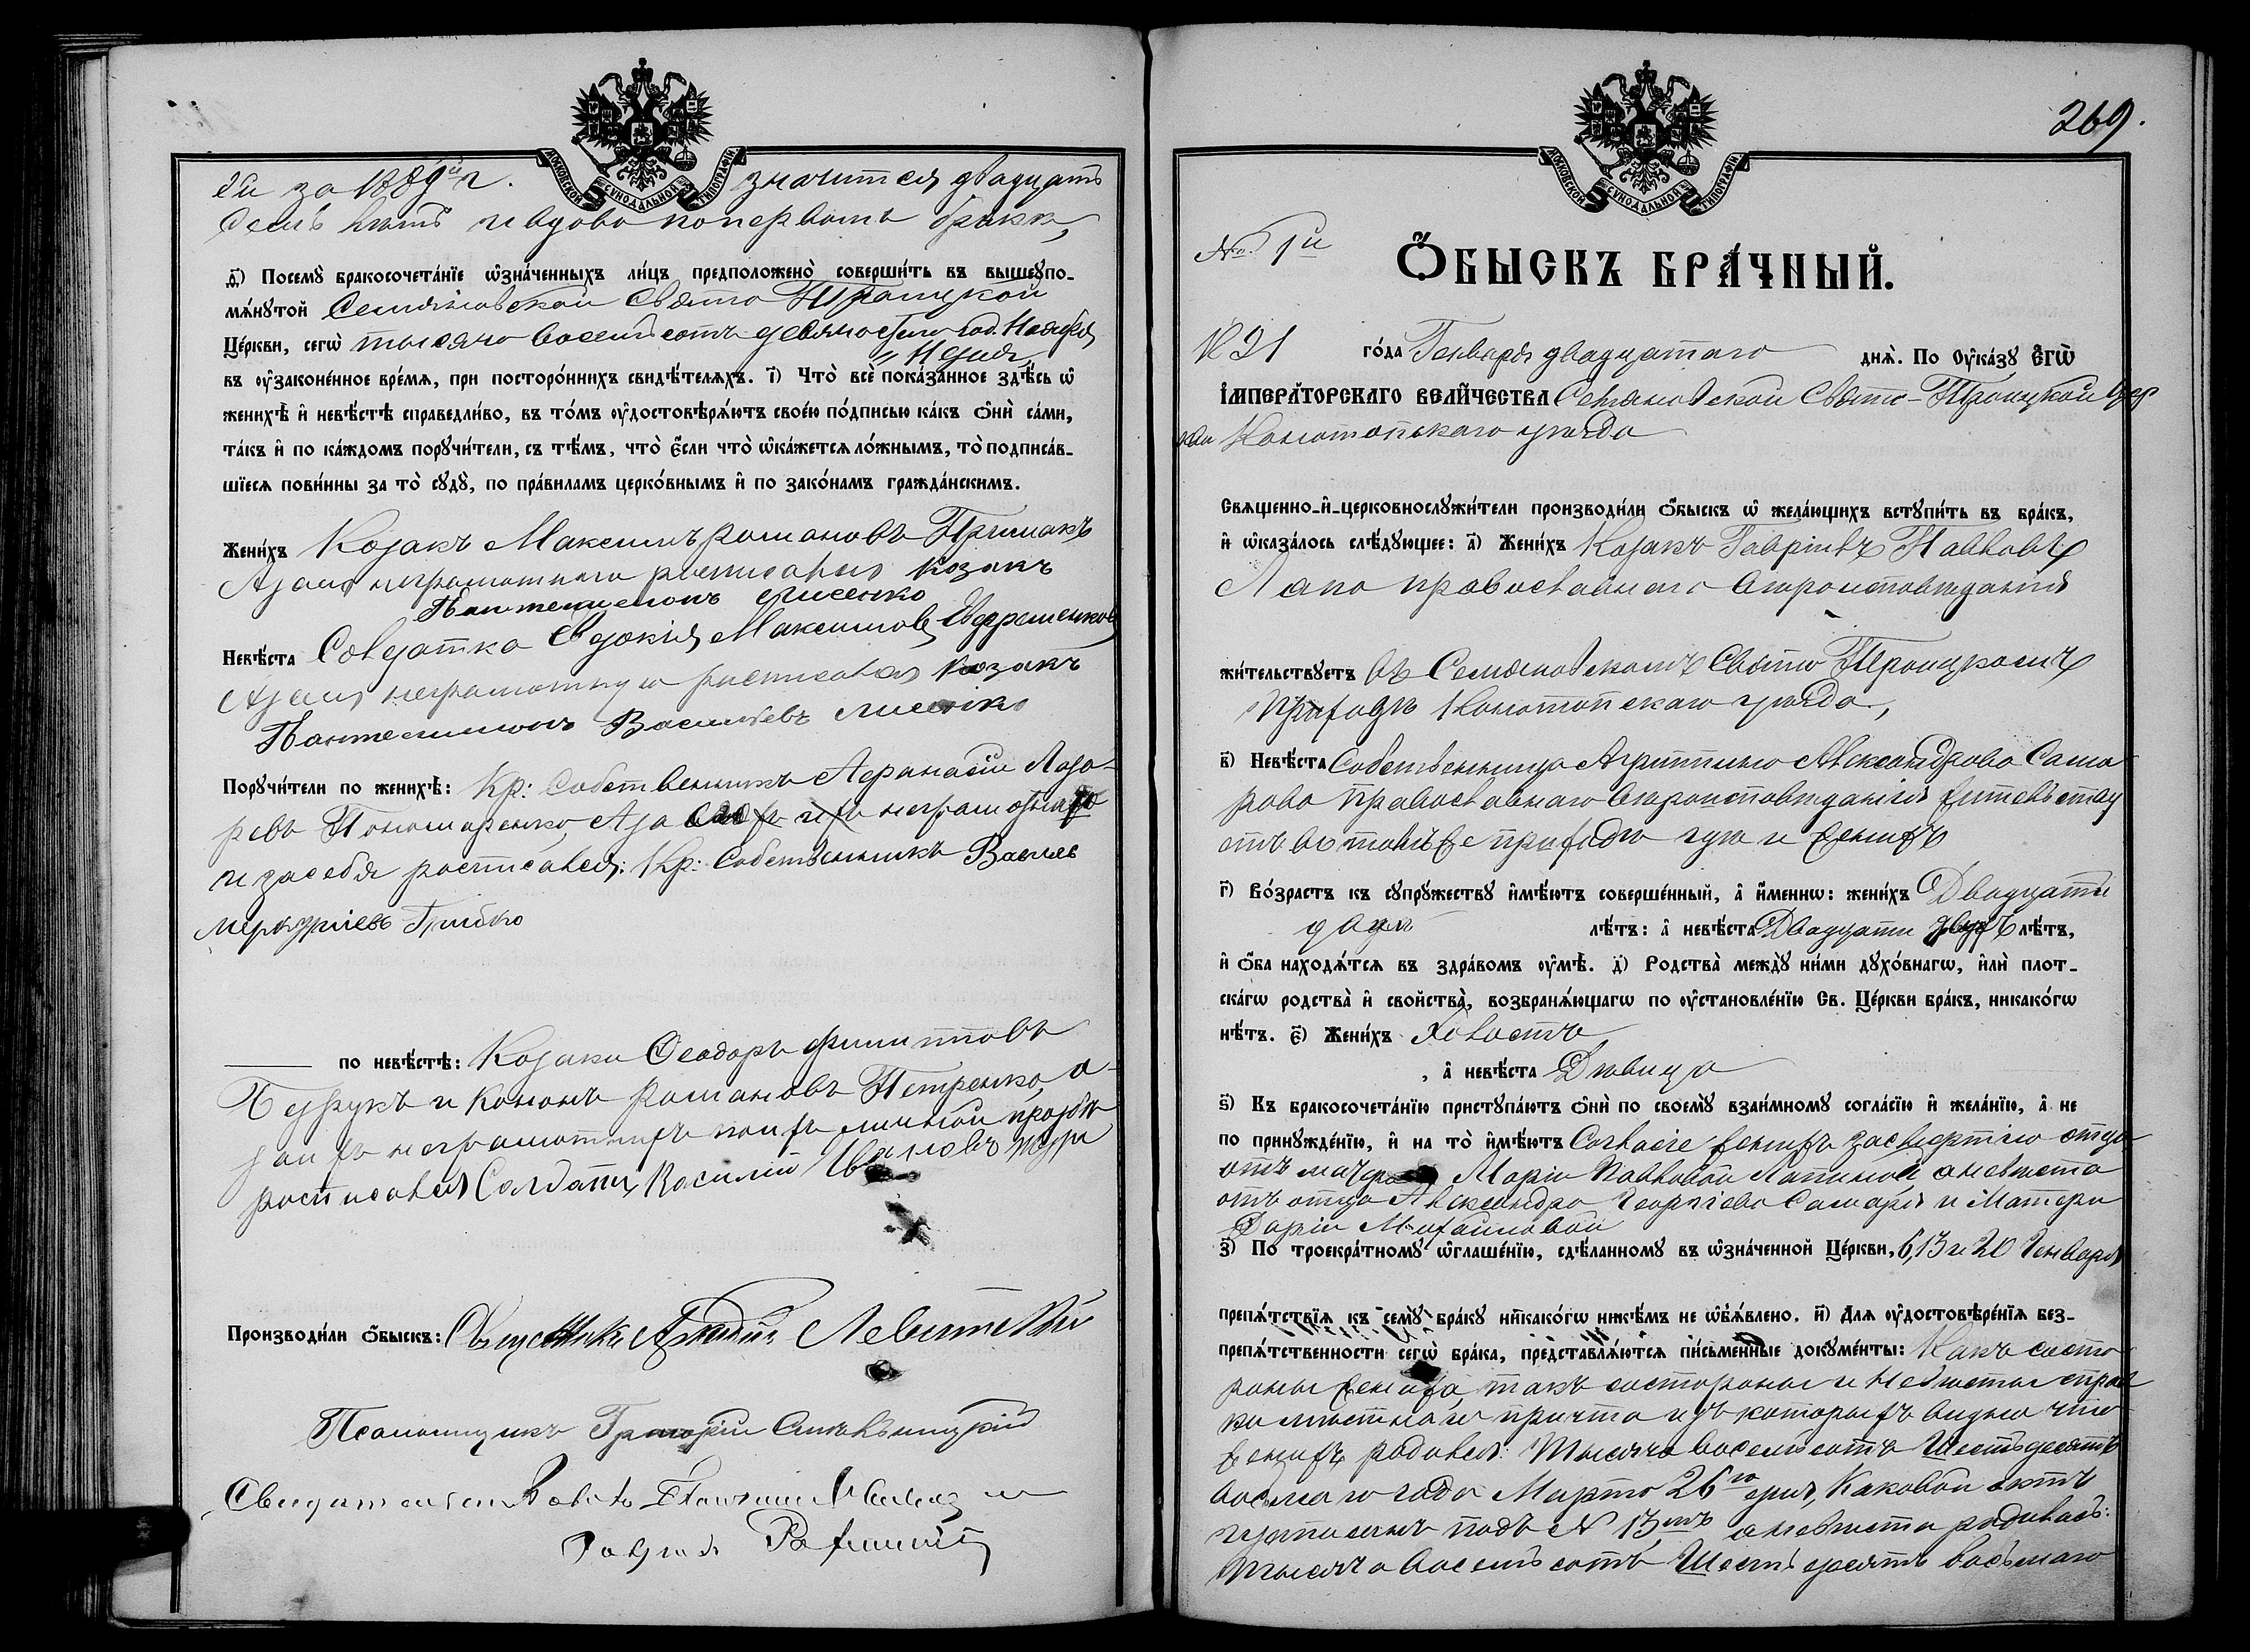 ѣи за 1889й г. значится двадцать
семь лѣтъ и вдова по первомъ бракѣ,
д҃) Посемꙋ̀ бракосочета́нїе ѡ҆зна́ченныхъ ли́цъ предположено̀ соверши́ть въ вышеꙋпо-
мѧ́нꙋтой Семяновской Свято Троицкой
Це́ркви, сегѡ̀ тысяча восемьсотъ девяностаго год. Ноября
„ дня
въ ѹ҆законе́нное вре́мѧ, при посторо́ннихъ свидѣ́телѧхъ. і҃) Что̀ всѐ пока́занное здѣ́сь ѡ҆
женихѣ̀ и҆ невѣ́стѣ справедли́во, въ то́мъ ѹ҆достовѣрѧ́ютъ свое́ю по́дписью ка́къ ѻ҆нѝ са́ми,
та́къ и҆ по ка́ждомъ порꙋчи́тели, съ тѣ́мъ, что̀ є҆́сли что̀ ѡ҆ка́жетсѧ ло́жнымъ, то̀ подписа́в-
шїесѧ пови́нны за то̀ сꙋдꙋ̀, по пра́виламъ церко́внымъ и҆ по зако́намъ гражда́нскимъ.
Жени́хъ Козакъ Максимъ Романовъ Примакъ
А за его неграмотнаго росписался козакъ
Пантелеимонъ Лисенко
Невѣ́ста Солдатка Евдокія Максимова Ефременкова
А за ея неграмотную росписался козакъ
Пантелеимонъ Васильевъ Лисенко
Порꙋчи́тели по женихѣ̀: Кр: Собственникъ Афанасій Лаза-
ревъ Пономаренко, А за неграмотнаго
и за себя росписался: Кр: Собственникъ Василь
Меркуріевъ Грибко
по невѣ́стѣ: Козаки Ѳеодоръ Филипповъ
и Кононъ Романовъ Петренко, а
за ихъ неграмотныхъ по ихъ личной прозбѣ
росписался Солдатъ Василий Ивановъ
Производи́ли ѻ҆́быскъ: Священникъ Левитскій
Псаломщикъ Григорій
Свидѣтели
269.
МОСКОВСКОЙ СѴНОДАЛЬНОЙ ТИПОГРАФІИ
МОСКОВСКОЙ СѴНОДАЛЬНОЙ ТИПОГРАФІИ
№ 1й
Ѻ҆́БЫСКЪ БРА́ЧНЫЙ.
1891 го́да Генваря двадцатаго днѧ̀. По Ѹ҆ка́зꙋ Е҆гѡ̀
І҆МПЕРА́ТОРСКАГО ВЕЛИ́ЧЕСТВА Семяновской Свято-Троицкой Цер
кви Конотопскаго уѣзда
Свѧщенно-и҆-церковнослꙋжи́тели производи́ли ѻ҆́быскъ ѡ҆ жела́ющихъ встꙋпи́ть въ бра́къ,
и҆ ѡ҆каза́лось слѣ́дꙋющее: а҃) Жени́хъ Козакъ Гавріилъ Павловъ
Лапа православнаго вѣроисповѣданія
жи́тельствꙋетъ въ Семяновскомъ Свято Троицкомъ
приходѣ Конотопскаго уѣзда.,
в҃) Невѣ́ста Собственница Агриппина Александрова Сама
рова православнаго вѣроисповѣданія жительству
етъ въ томъ же приходѣ гдѣ и женихъ
г҃) Во́зрастъ къ сꙋпрꙋ́жествꙋ и҆мѣ́ютъ соверше́нный, а҆ и҆́меннѡ: жени́хъ Двадцати
двух лѣ́тъ: а҆ невѣ́ста Двадцати двухъ лѣ́тъ,
и҆ ѻ҆́ба находѧ́тсѧ въ здра́вомъ ѹ҆мѣ̀. д҃) Родства̀ междꙋ̀ ни́ми дꙋхо́внагѡ, и҆лѝ плот-
ска́гѡ родства̀ и҆ свойства̀, возбранѧ́ющагѡ по ѹ҆становле́нїю Св. Це́ркви бра́къ, никако́гѡ
нѣ́тъ. є҃) Жени́хъ Холостъ
, а҆ невѣ́ста Дѣвица
ѕ҃) Къ бракосочета́нїю пристꙋпа́ютъ ѻ҆нѝ по своемꙋ̀ взаи́мномꙋ согла́сїю и҆ жела́нїю, а҆ не
по принꙋжде́нїю, и҆ на то̀ и҆мѣ́ютъ Согласіе женихъ за смертію отца
отъ матери Маріи Павловой Лапиной а невѣста
отъ отца Александра Георгіева Самара и Матери
Даріи Михайловой
з҃) По троекра́тномꙋ ѡ҆глаше́нїю, сдѣ́ланномꙋ въ ѡ҆зна́ченной Це́ркви, 6, 13 и 20 Генваря
препѧ́тствїѧ къ семꙋ̀ бра́кꙋ никако́гѡ никѣ́мъ не ѡ҆б̾ѧ́влено. и҃) Длѧ ѹ҆достовѣре́нїѧ без-
препѧ́тственности сегѡ̀ бра́ка, представлѧ́ютсѧ пи́сьменные докꙋме́нты: Какъ состо
роны жениха, такъ со стороны и невѣсты справ
ки мѣстнаго причта изъ которыхъ видно что
женихъ родился: Тысяча восемьсотъ Шестьдесятъ
восьмаго года Марта 26го дня, Каковой актъ
записанъ подъ № 13мъ а невѣста родилась:
тысяча восемьсотъ Шестьдесятъ восьмаго